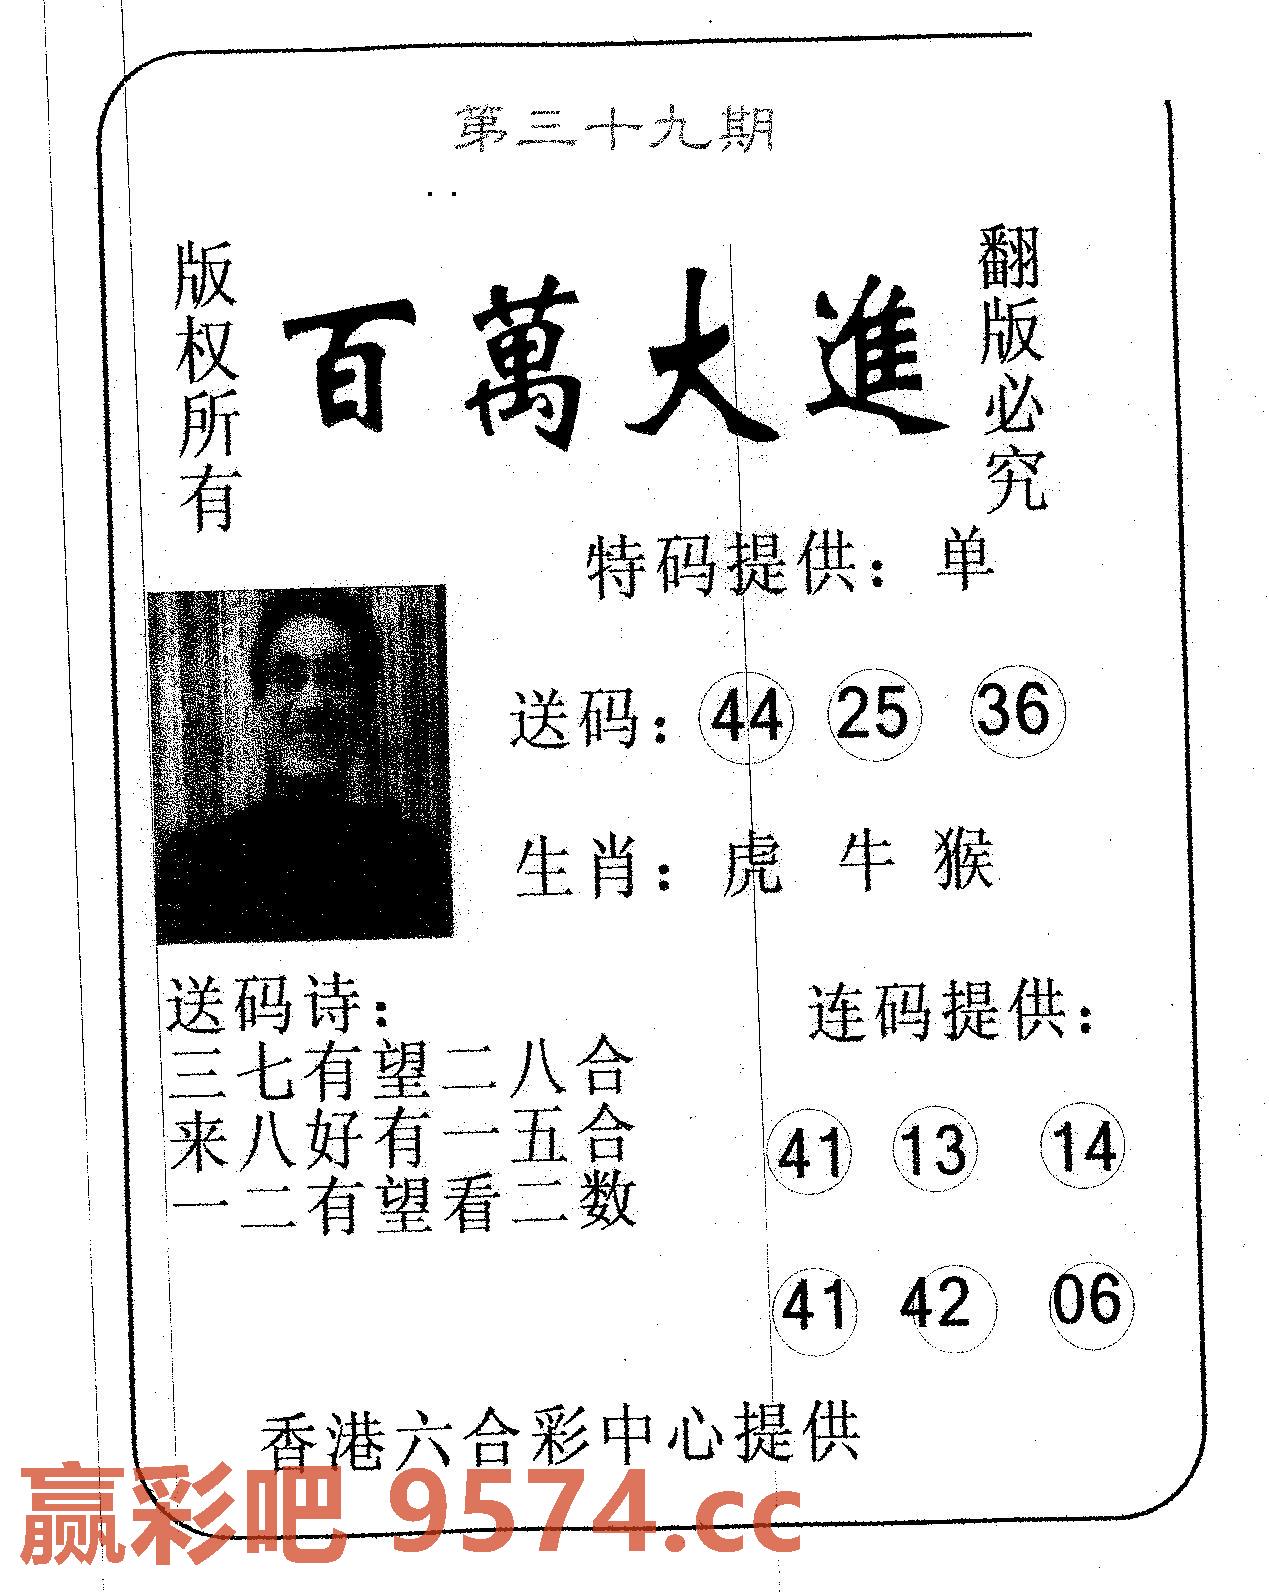 第三十九期
版权所有
百萬大進
翻版必究
特码提供：单
送码：44 25 36
生肖：虎 牛 猴
送码诗：
三七有望二八合
来八好有一五合
一二有望看二数
连码提供：
41 13 14
41 42 06
香港六合彩中心提供
赢彩吧 9574.cc